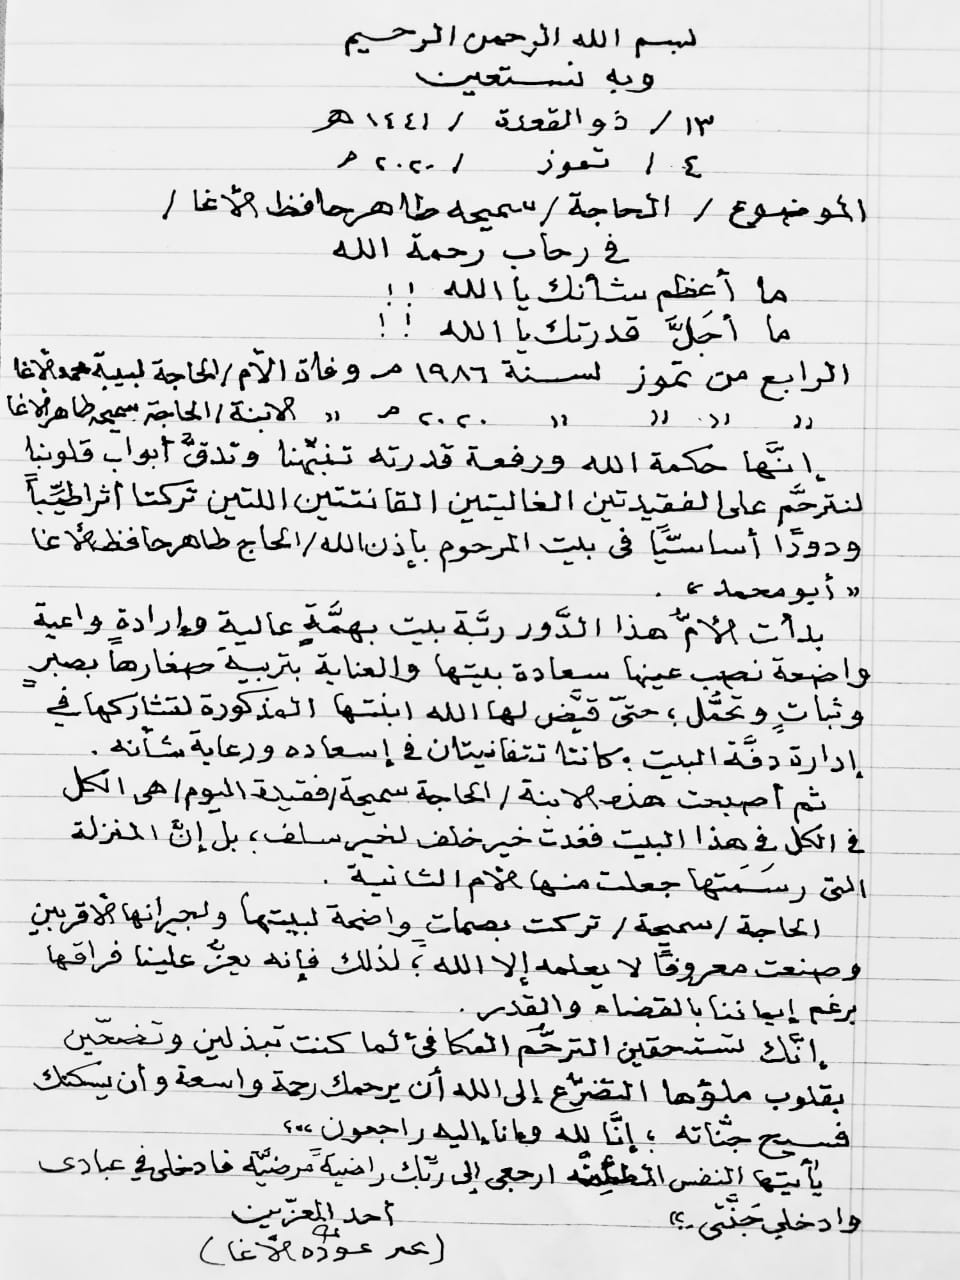 بسم الله الرحمن الرحيم
وبه نستعين
١٣ / ذو القعدة / ١٤٤١ هـ
٤ / تموز / ٢٠٢٠ م
الموضوع / الحاجة / سميحه طاهر حافظ الأغا /
في رحاب رحمة الله
ما أعظم شأنك يا الله !!
ما أجَلَّ قدرتك يا الله !!
الرابع من تموز لسنة ١٩٨٦ م وفاة الأم / الحاجة لبيبة محمد الأغا
〃 〃 〃 〃 ٢٠٢٠ م 〃 الابنة / الحاجة سميحه طاهر الأغا
إنَّها حكمة الله ورفعة قدرته تنبّهنا وتدقُّ أبواب قلوبنا
لنترحَّم على الفقيدتين الغاليتين القانتتين اللتين تركتا أثراً طيّباً
ودورًا أساسيًّا في بيت المرحوم بإذن الله / الحاج طاهر حافظ الأغا
" أبو محمد " .
بدأت الأمُّ هذا الدَّور ربَّة بيت بهمَّةٍ عاليةٍ وإرادةٍ واعية
واضعة نصب عينها سعادة بيتها والعناية بتربية صغارها بصبرٍ
وثباتٍ وتحمُّل ؛ حتىّ قيَّض لها الله ابنتها المذكورة لتشاركها في
إدارة دفَّة البيت ؛ كانتا تتفانيتان في إسعاده ورعاية شأنه .
ثم أصبحت هذه الابنة / الحاجة سميحة / فقيدة اليوم / هى الكل
في الكل في هذا البيت فغدت خير خلف لخير سلف ؛ بل إنَّ المنزلة
التى رسَمَتها جعلت منها الأم الثانية .
الحاجة / سميحة / تركت بصماتٍ واضحة لبيتها ولجيرانها الأقربين
وصنعت معروفًا لا يعلمه إلا الله ؛ لذلك فإنه يعزُّ علينا فراقها
برغم إيماننا بالقضاء والقدر .
إنَّك تستحقين الترحُّم المكافئ لما كنت تبذلين وتضحّين
بقلوب ملؤها التضرّع إلى الله أن يرحمك رحمة واسعة وأن يسكنك
فسيح جنّاته ؛ إنَّا لله وإنا إليه راجعون "
يأيتها النفس المطمئنّه ارجعي إلى ربّك راضيةً مرضيّة فادخلى في عبادى
وادخلي جَنَّتى "
أحد المعزّين
( عمر عودة الأغا )